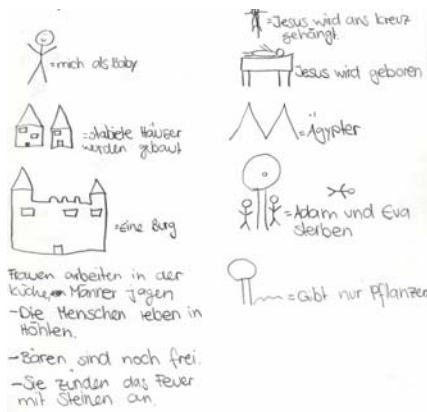 =mich als Baby
=stabiele Häuser
wurden gebaut
=eine Burg
Frauen arbeiten in der
Küche, Männer jagen
-Die Menschen leben in
Höhlen.
-Bären sind noch frei.
-Sie zünden das Feuer
mit Steinen an.
=Jesus wird ans kreuz
gehängt
Jesus wird geboren
=Ägypter
=Adam und Eva
sterben
=Gibt nur Pflanzen